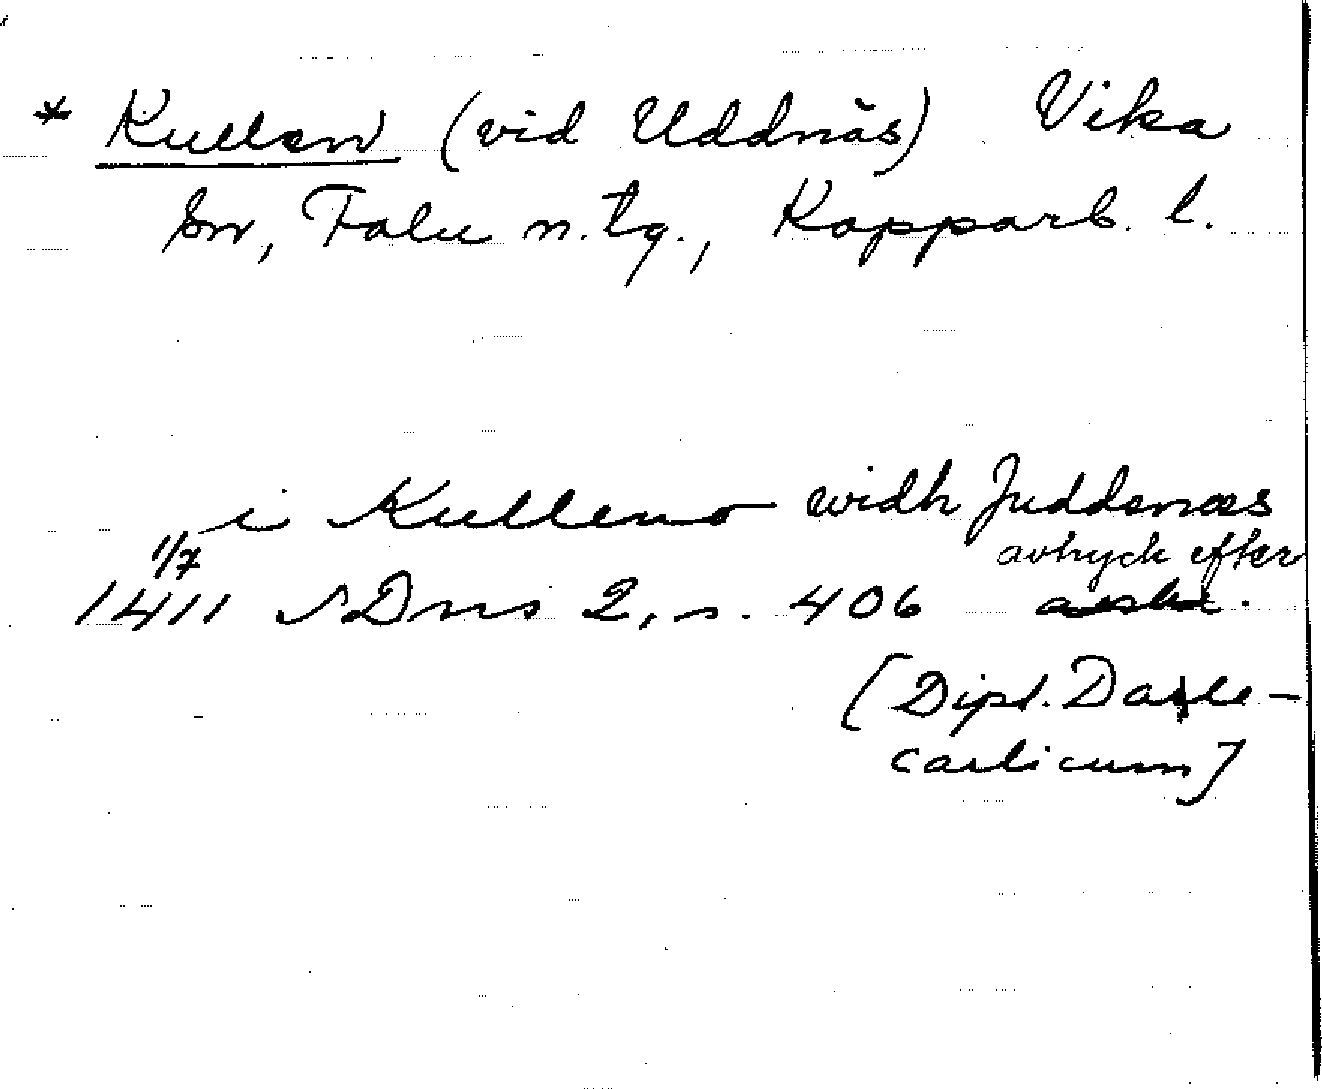 * Kullen (vid Uddnäs) Vika
sn, Falu n. tg., Kopparb. l.
i Kulleno widh Juddenæs
1/7
avtryck efter
1411 SDns 2, s. 406 avskr.
[Dipl. Dale-
carlicum]